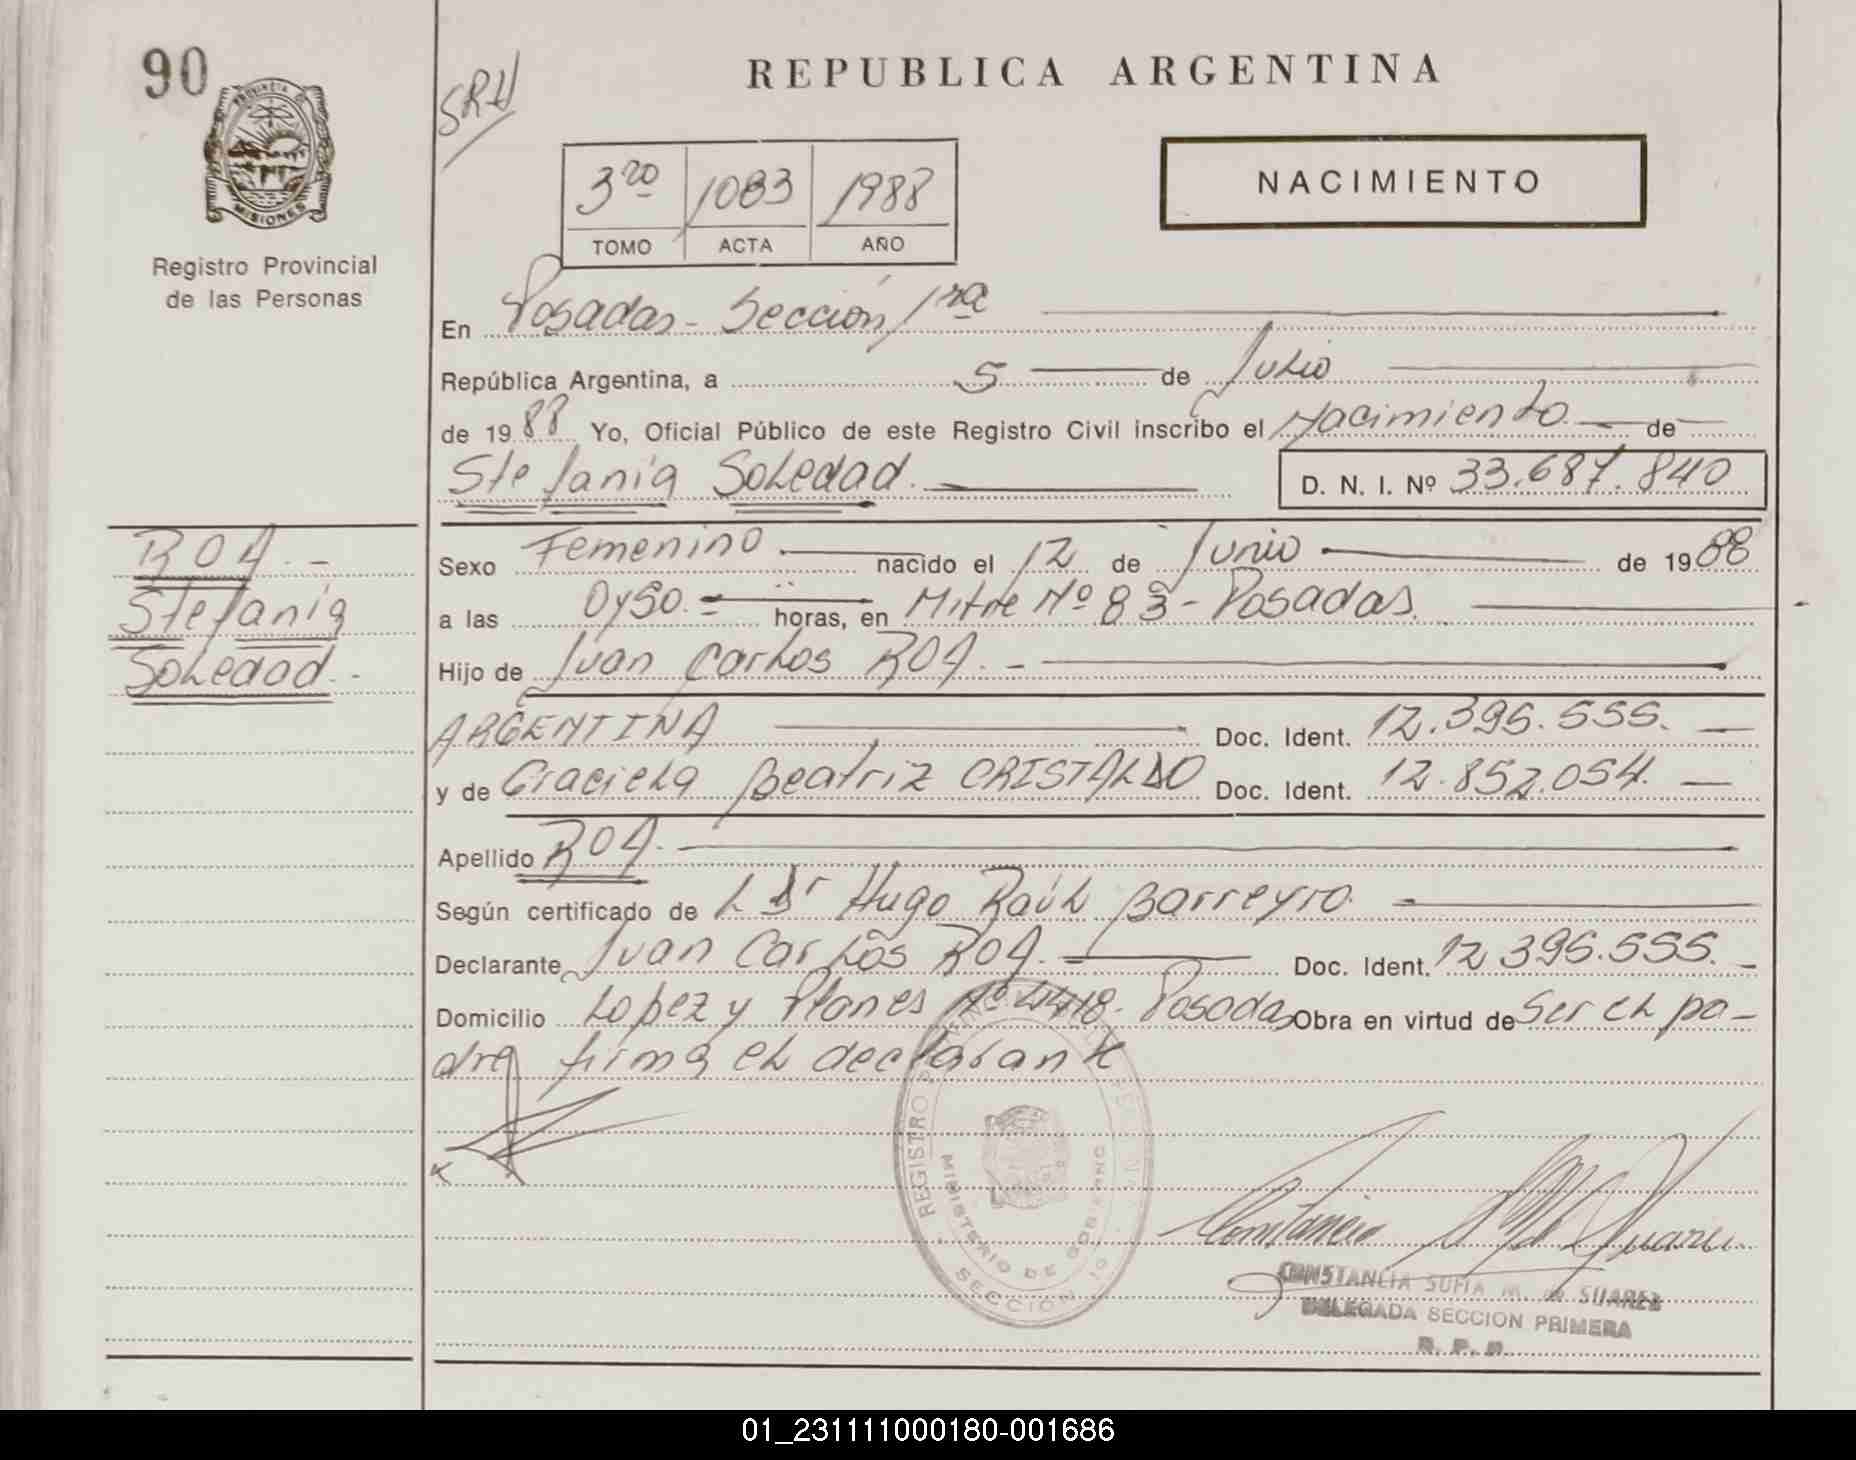 90
PROVINCIA DE
MISIONES
Registro Provincial
de las Personas
SRH
REPUBLICA ARGENTINA
3ro 1083 1988
TOMO ACTA AÑO
NACIMIENTO
En Posadas - Sección 1ra
República Argentina, a 5 de Julio
de 1988 Yo, Oficial Público de este Registro Civil inscribo el Nacimiento de
Stefania Soledad. D. N. I. Nº 33.687.840
ROA.-
Stefania
Soledad.-
Sexo Femenino nacido el 12 de Junio de 1988
a las 0y50.= horas, en Mitre Nº 83 - Posadas.
Hijo de Juan Carlos ROA.-
ARGENTINA Doc. Ident. 12.395.555.
y de Graciela Beatriz CRISTALDO Doc. Ident. 12.852.054.
Apellido ROA.
Según certificado de L Dr Hugo Raúl Barreyro.
Declarante Juan Carlos ROA. Doc. Ident. 12.395.555.
Domicilio Lopez y Planes Nº 4418 - Posadas Obra en virtud de Ser el pa-
dre firma el declarante
REGISTRO
MINISTERIO DE GOBIERNO
SECCION 1º
Constancia Suarez
CONSTANCIA SOFIA M. de SUAREZ
DELEGADA SECCION PRIMERA
R. P. P.
01_231111000180-001686